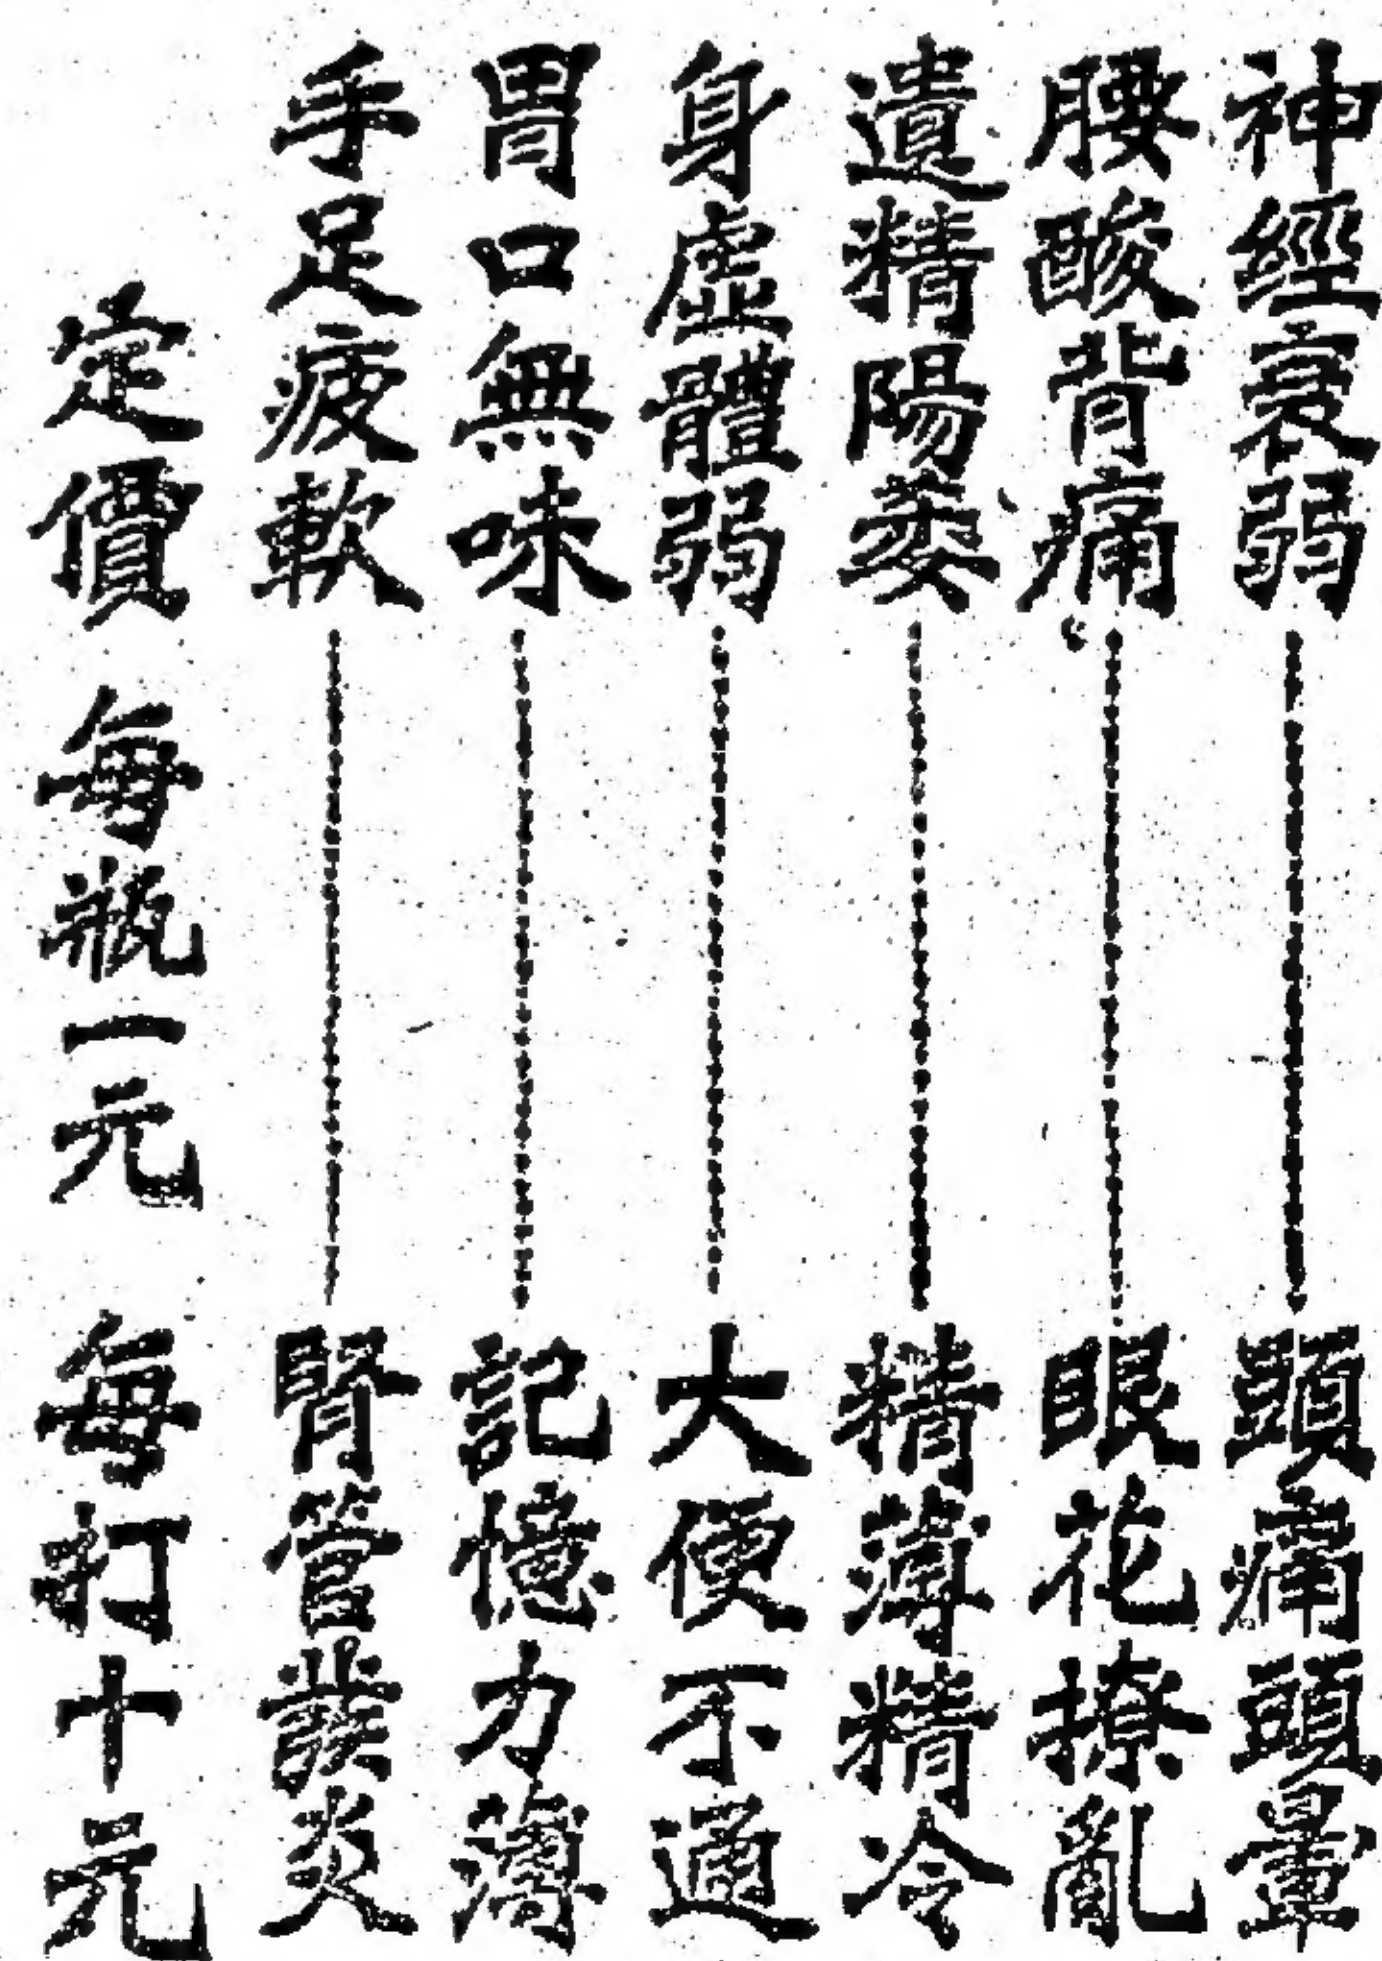 神經衰弱 頭痛頭暈
腰酸背痛 眼花撩亂
遺精陽萎 精薄精冷
身虛體弱 大便不通
胃口無味 記憶力薄
手足疲軟 腎管發炎
定價 每瓶一元 每打十元